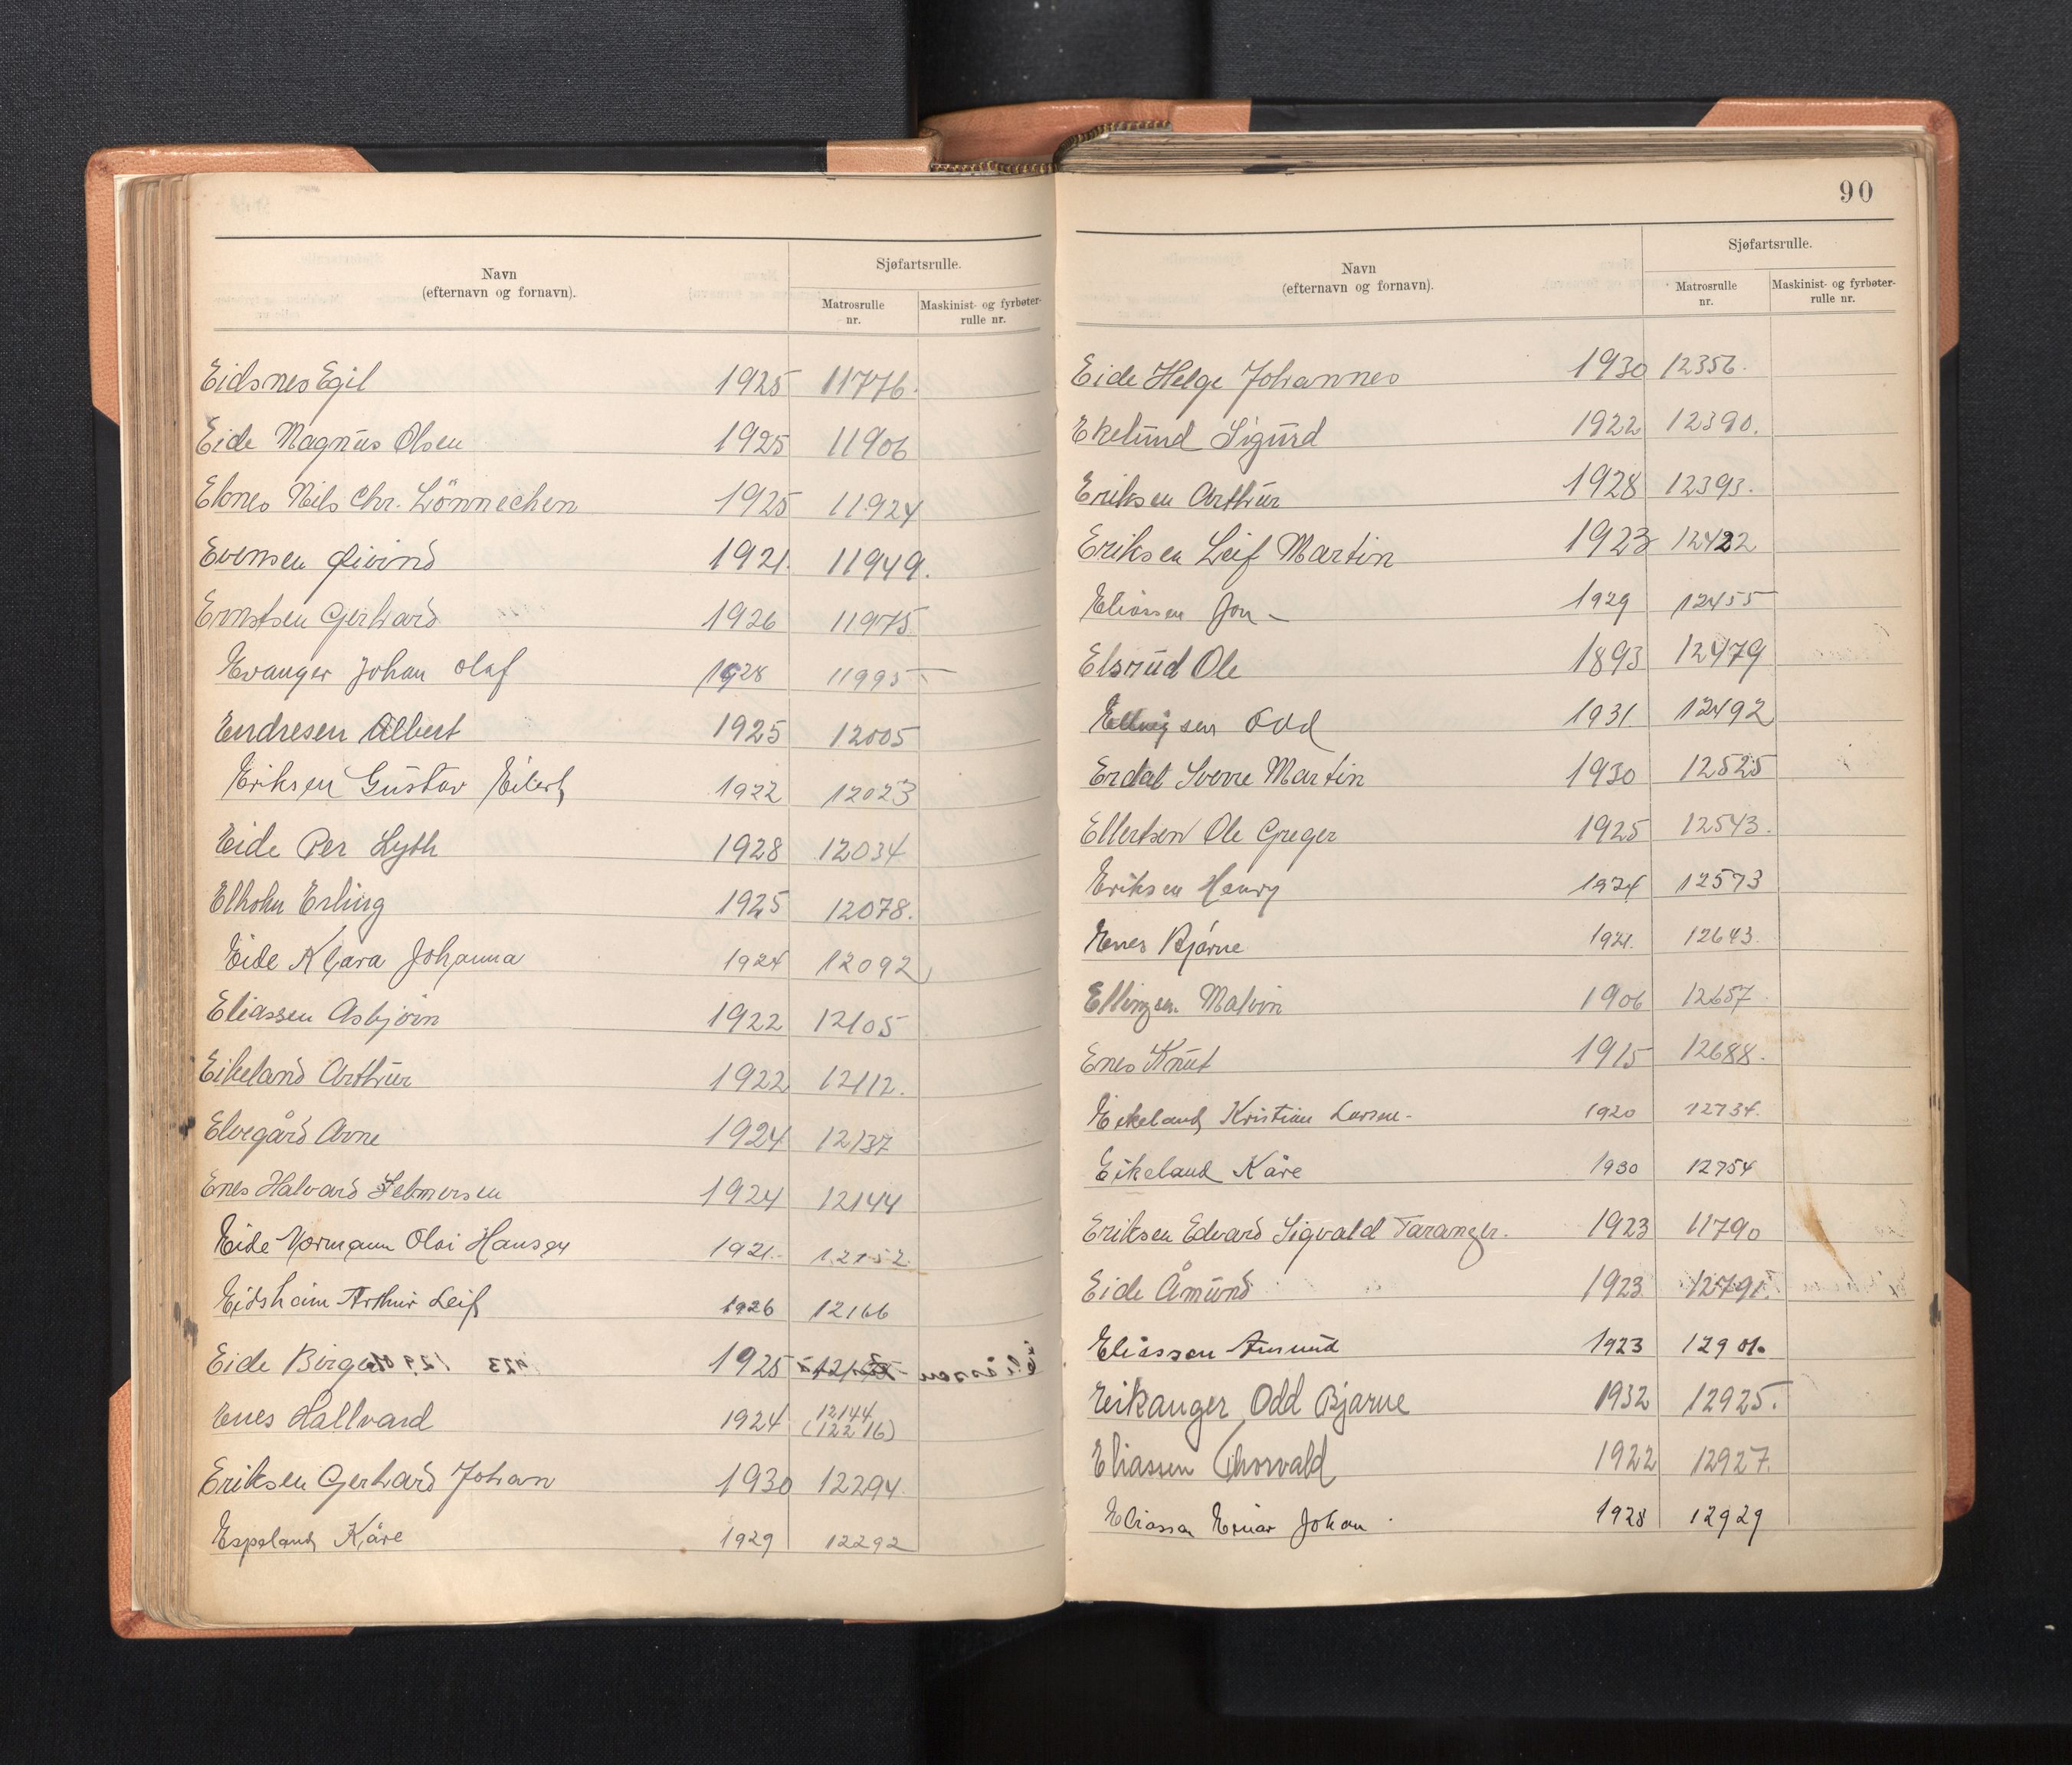 Navn
(efternavn og fornavn).
Sjøfartsrulle.
Matrosrulle
nr.
Maskinist- og fyrbøter-
rulle nr.
Eidsnes Egil 1925 11776.
Eide Magnus Olsen 1925 11906
Nils Chr. Lönnechen 1925 11924
Evensen Øivind 1921. 11949.
Ernstsen Gerhard 1926 11975
Evanger Johan Olaf 1928 11995
Endresen Albert 1925 12005
Eriksen Gustav Eilert 1922 12023
Eide Per Lyth 1928 12034
Elholm Erling 1925 12078.
Eide Klara Johanna 1924 12092
Eliassen Asbjörn 1922 12105
Eikeland Arthur 1922 12112.
Elvegård Arne 1924 12137
Enes Halvard Selmersen 1924 12144
Eide Normann Olai Hansen 1921. 12152
Eidsheim Arthur Leif 1926 12166
Eide Birger 1925
Enes Hallvard 1924 12144
(12216)
Eriksen Gerhard Johan 1930 12294.
Espeland Kåre 1929 12292
90
Navn
(efternavn og fornavn).
Sjøfartsrulle.
Matrosrulle
nr.
Maskinist- og fyrbøter-
rulle nr.
Eide Helge Johannes 1930 12356.
Ekelund Sigurd 1922 12390.
Eriksen Arthur 1928 12393.
Eriksen Leif Martin 1923 12422
Eliassen Jon - 1929 12455
Elsrud Ole 1893 12479
Ellingsen Odd 1931 12492
Erdal Sverre Martin 1930 12525
Ellertsen Ole Greger 1925 12543.
Eriksen Henry 1924 12573
Enes Bjarne 1921. 12643.
Ellingsen Malvin 1906 12657
Enes Knut 1915 12688.
Eikeland Kristian Larsen. 1920 12734.
Eikeland Kåre 1930 12754
Eriksen Edvard Sigvald Taranger. 1923 11790
Eide Åmund 1923 12791.
Eliassen Amund 1923 12901.
Eikanger Odd Bjarne 1932 12925.
Eliassen Thorvald 1922 12927.
Eliassen Einar Johan 1928 12929